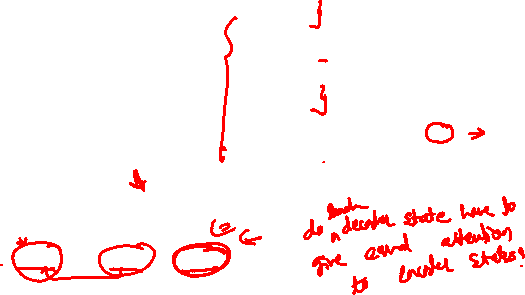 do each decoder state have to
give equal attention
to encoder states?